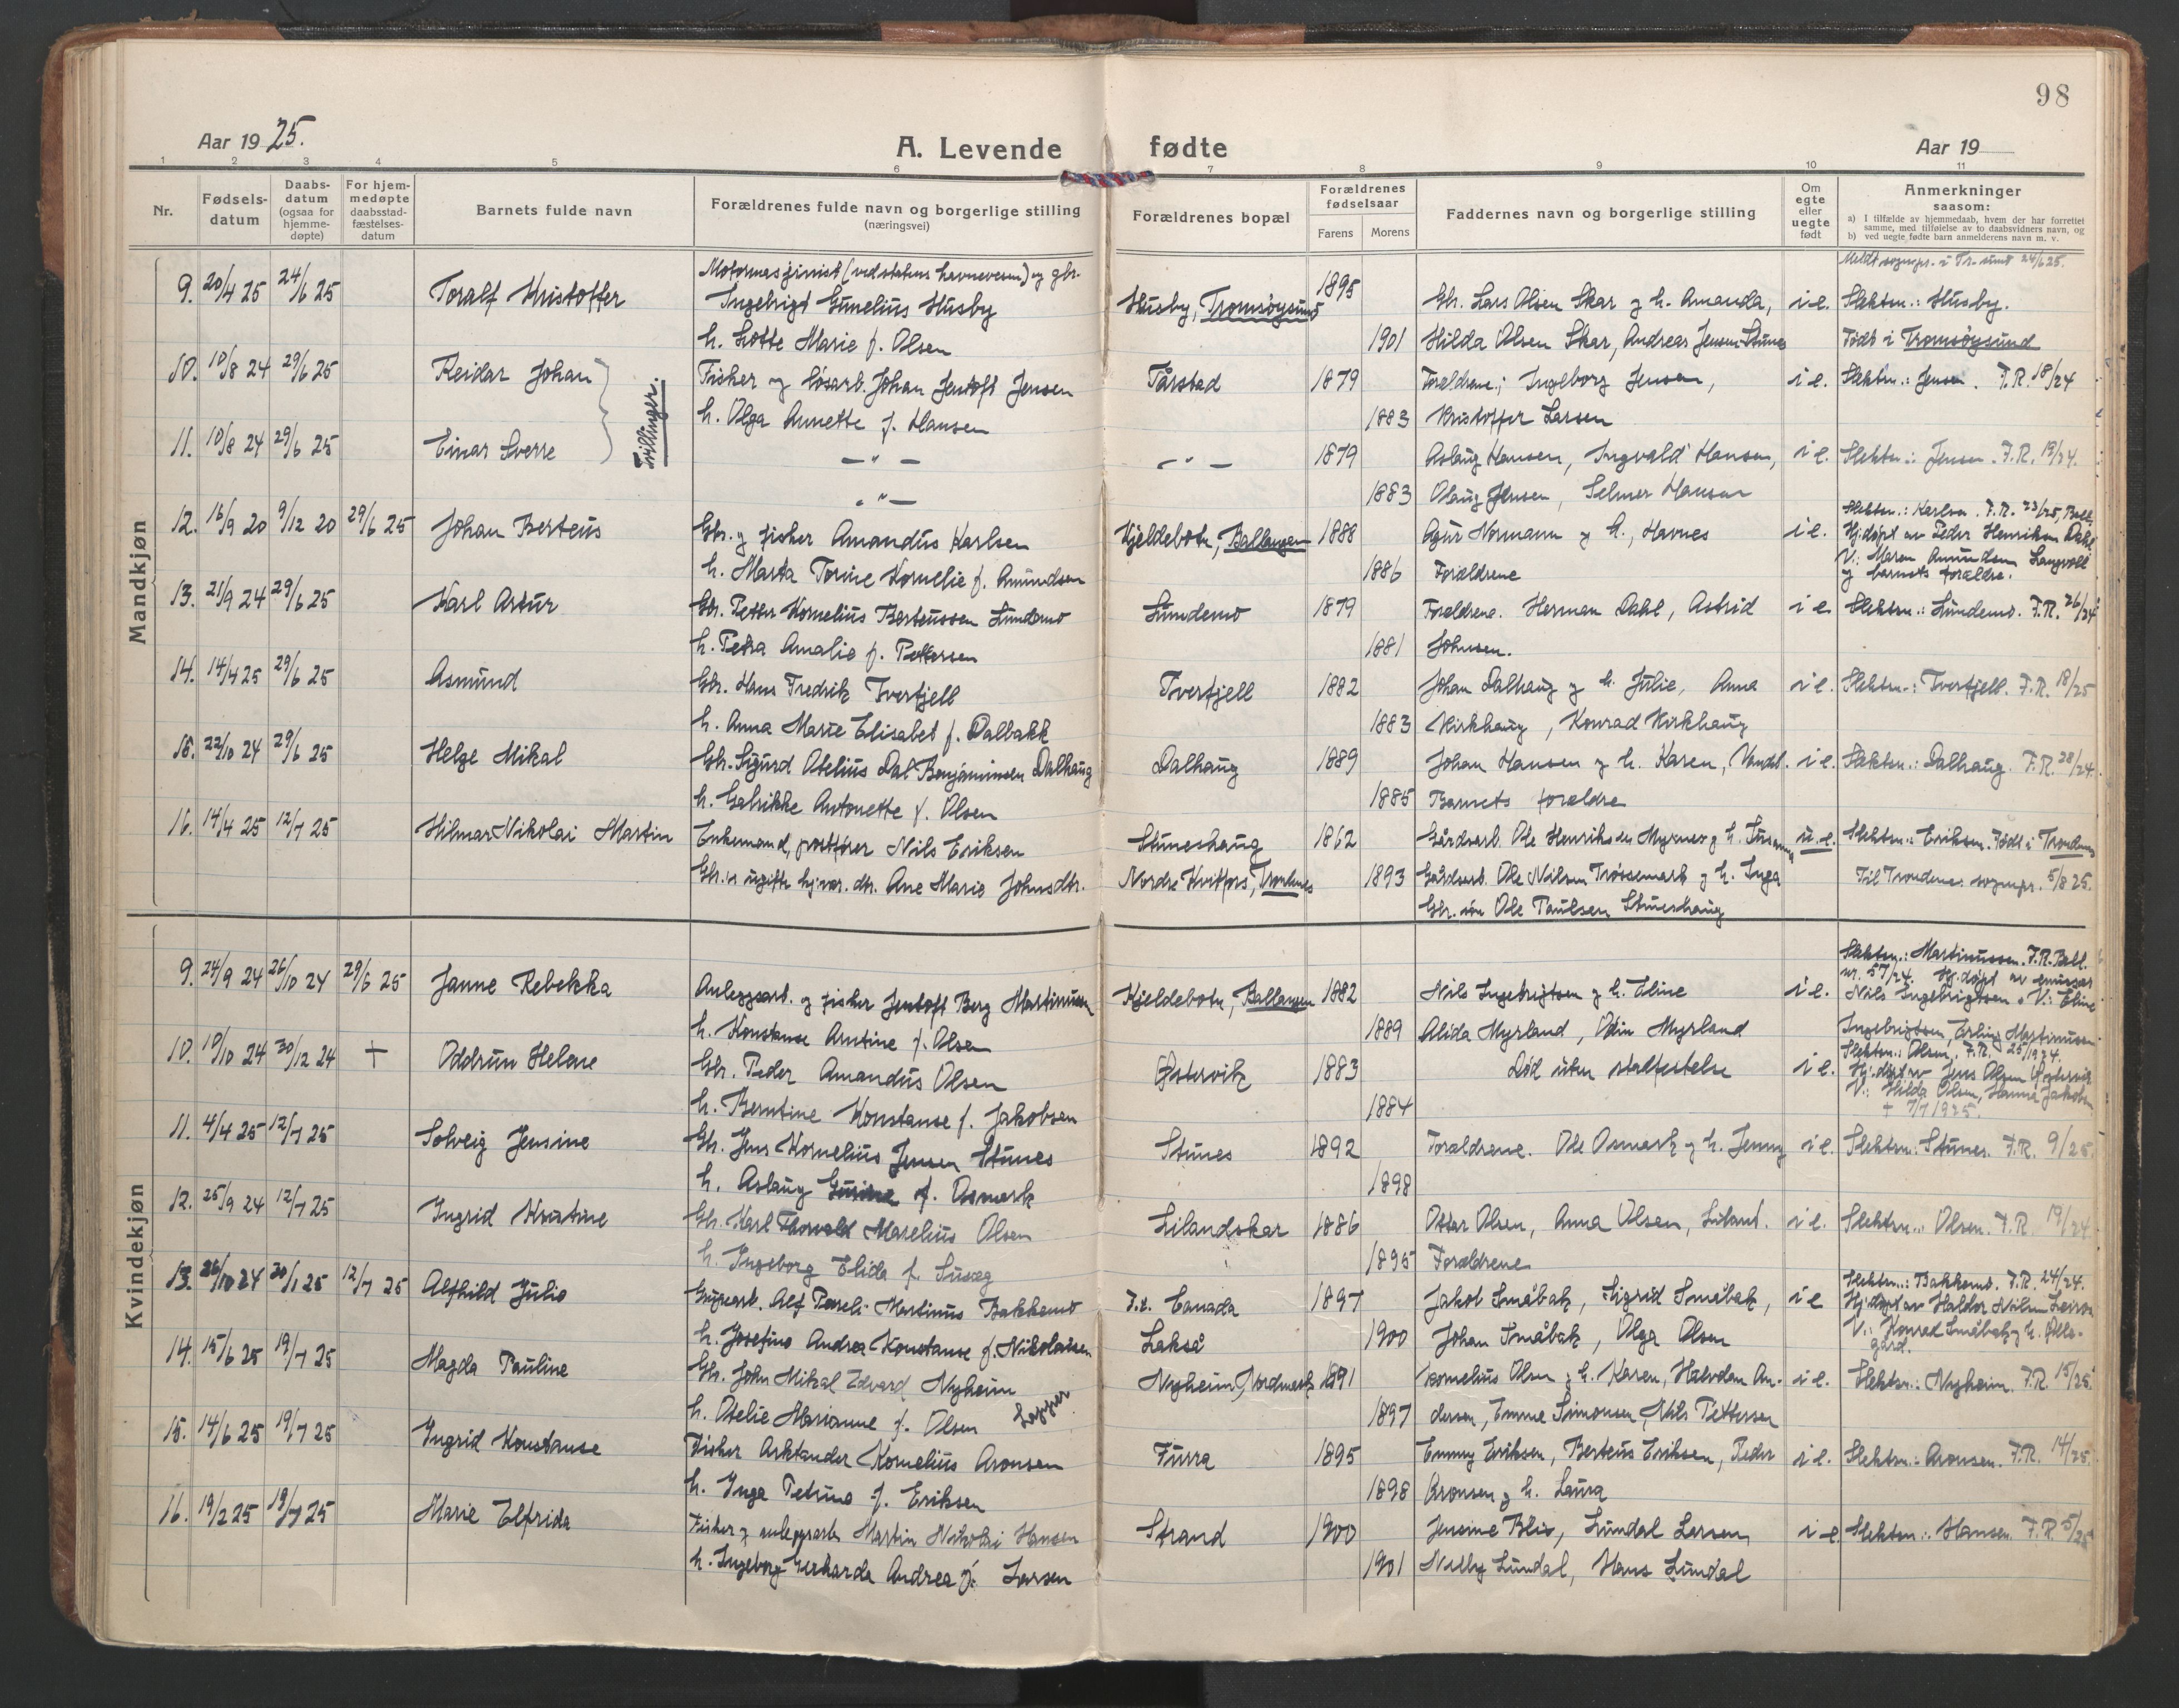 98
Aar 1925.
A. Levende fødte
Aar 19
1 2 3 4 5 6 7 8 9 10 11
Nr.
Fødsels-
datum
Daabs-
datum
(ogsaa for
hjemme-
døpte)
For hjem-
medøpte
daabsstad-
fæstelses-
datum
Barnets fulde navn
Forældrenes fulde navn og borgerlige stilling
(næringsvei)
Forældrenes bopæl
Forældrenes
fødselsaar
Farens Morens
Faddernes navn og borgerlige stilling
Om
egte
eller
uegte
født
Anmerkninger
saasom:
a) I tilfælde av hjemmedaab, hvem der har forrettet
samme, med tilføielse av to daabsvidners navn, og
b) ved uegte fødte barn anmelderens navn m. v.
Mandkjøn
Motormasjinist (ved statens havnevesen) og gbr. Meldt sognepr. i Tr.sund 24/6 25.
9. 20/4 25 24/6 25 Toralf Kristoffer Ingebrigt Gunelius Husby Husby, Tromsøysund 1895 Gbr. Lars Olsen Skar og h. Amanda, i e. Slektsn.: Husby.
h. Lotte Marie f. Olsen 1901 Hilda Olsen Skar, Andreas Jensen Stunes Født i Tromsøysund
10. 10/8 24 29/6 25 Reidar Johan Fisker og løsarb. Johan Jentoft Jensen Tårstad 1879 Forældrene; Ingeborg Jensen, i e. Slektsn.: Jensen. F.R. 18/24
Tvillinger.
h. Olga Annette f. Hansen 1883 Kristoffer Larsen
11. 10/8 24 29/6 25 Einar Sverre — " — — " — 1879 Aslaug Hansen, Ingvald Hansen, i e. Slektsn.: Jensen. F.R. 19/24.
— " — 1883 Olaug Jensen, Selmer Hansen
Slektsn.: Karlsen. F.R. 23/25, Ball.
12. 16/9 20 9/12 20 29/6 25 Johan Berteus Gbr. og fisker Amandus Karlsen Kjeldebotn, Ballangen 1888 Agur Normann og h., Havnes i e. Hj.døpt av Peder Henriksen Dahl
V.: Maren Amundsen Langvoll
h. Marta Torine Kornelie f. Amundsen 1886 Forældrene og barnets forældre.
13. 21/9 24 29/6 25 Karl Artur Gbr. Petter Kornelius Berteussen Lundemo Lundemo 1879 Forældrene. Herman Dahl, Astrid i e Slektsn.: Lundemo. F.R. 26/24
h. Petra Amalie f. Pettersen 1881 Johnsen.
14. 14/4 25 29/6 25 Asmund Gbr. Hans Fredrik Tverfjell Tverfjell 1882 Johan Dalhaug og h. Julie, Anna i e. Slektsn.: Tverfjell. F.R. 18/25
h. Anna Marie Elisabet f. Dalbakk 1883 Kirkhaug, Konrad Kirkhaug
15. 22/10 24 29/6 25 Helge Mikal Gbr. Sigurd Otelius Dal Benjaminsen Dalhaug Dalhaug 1889 Johan Hansen og h. Karen, i e. Slektsn.: Dalhaug. F.R. 28/24.
h. Galrikke Antonette f. Olsen 1885 Barnets forældre
16. 14/4 25 12/7 25 Hilmar Nikolai Martin Enkemand, postfører Nils Eriksen Stuneshaug 1862 Gårdsarb. Ole Henriksen Myrnes og h. Susanna u.e. Slektsn.: Eriksen. Født i Trondenes
ugifte Ane Marie Johnsdtr. Nordre Kvitfors, Trondenes 1893 Gårdsarb. Ole Nilsen Trøssemark og h. Inga Til Trondenes sognepr. 5/8 25.
Gbr. søn Ole Paulsen Stuneshaug
Kvindekjøn
Slektsn.: Martinussen. F.R. Ball.
nr. 57/24. Hj.døpt av emissær
9. 24/9 24 26/10 24 29/6 25 Janne Rebekka Anleggsarb. og fisker Jentoft Berg Martinussen Kjeldebotn, Ballangen 1882 Nils Ingebrigtsen og h. Eline i e. Nils Ingebrigtsen. V.: Eline
h. Konstanse Arntine f. Olsen 1889 Alida Myrland, Odin Myrland Ingebrigtsen, Erling Martinussen
Slektsn.: Olsen. F.R. 25/1924.
10. 19/10 24 30/12 24 † Oddrun Helene Gbr. Peder Amandus Olsen Østervik 1883 Død uten stadfestelse i e. Hj.døpt av Jens Olsen Østervik
h. Berntine Konstanse f. Jakobsen 1884 V.: Hilda Olsen, Hanna Jakobsen
† 7/7 1925.
11. 4/4 25 12/7 25 Solveig Jensine Gbr. Jens Kornelius Jensen Stunes Stunes 1892 Forældrene. Ole Osmark og h. Jenny i e. Slektsn.: Stunes. F.R. 9/25.
h. Aslaug f. Osmark 1898
12. 25/9 24 12/7 25 Ingrid Kristine Gbr. Karl Thorvald Marelius Olsen Lilandskar 1886 Ottar Olsen, Anna Olsen, Liland. i e. Slektsn.: Olsen. F.R. 19/24
h. Ingeborg Elida f. 1895 Forældrene
Slektsn.: Bakkemo. F.R. 24/24.
13. 26/10 24 30/1 25 12/7 25 Alfhild Julie Alf Martinus Bakkemo F.t. Canada 1897 Jakob Småbak, Sigrid Småbak, i e Hj.døpt av Haldor Nilsen
h. Josefine Andrea Konstanse f. Nikolaisen Lakså 1900 Johan Småbak, Olga Olsen V.: Konrad Småbak og h.
gård.
14. 15/6 25 19/7 25 Magda Pauline Gbr. John Mikal Edvard Nyheim Nyheim, Nordmark 1891 Kornelius Olsen og h. Karen, Halvdan An- i e. Slektsn.: Nyheim. F.R. 15/25.
h. Otelie Marianne f. Olsen Lapper 1897 dersen, Emma Simonsen, Nils Pettersen
15. 14/6 25 19/7 25 Ingrid Konstanse Fisker Arktander Kornelius Aronsen Furra 1895 Emmy Eriksen, Berteus Eriksen, Peder i e. Slektsn.: Aronsen. F.R. 14/25.
h. Inga Petrine f. Eriksen 1898 Aronsen og h. Laura
16. 19/2 25 19/7 25 Marie Elfrida Fisker og anleggsarb. Martin Nikolai Hansen Strand 1900 Jensine Lundal Larsen, i e. Slektsn.: Hansen. F.R. 5/25
h. Ingeborg Gerharda Andrea f. Larsen 1901 Nelly Lundal, Hans Lundal